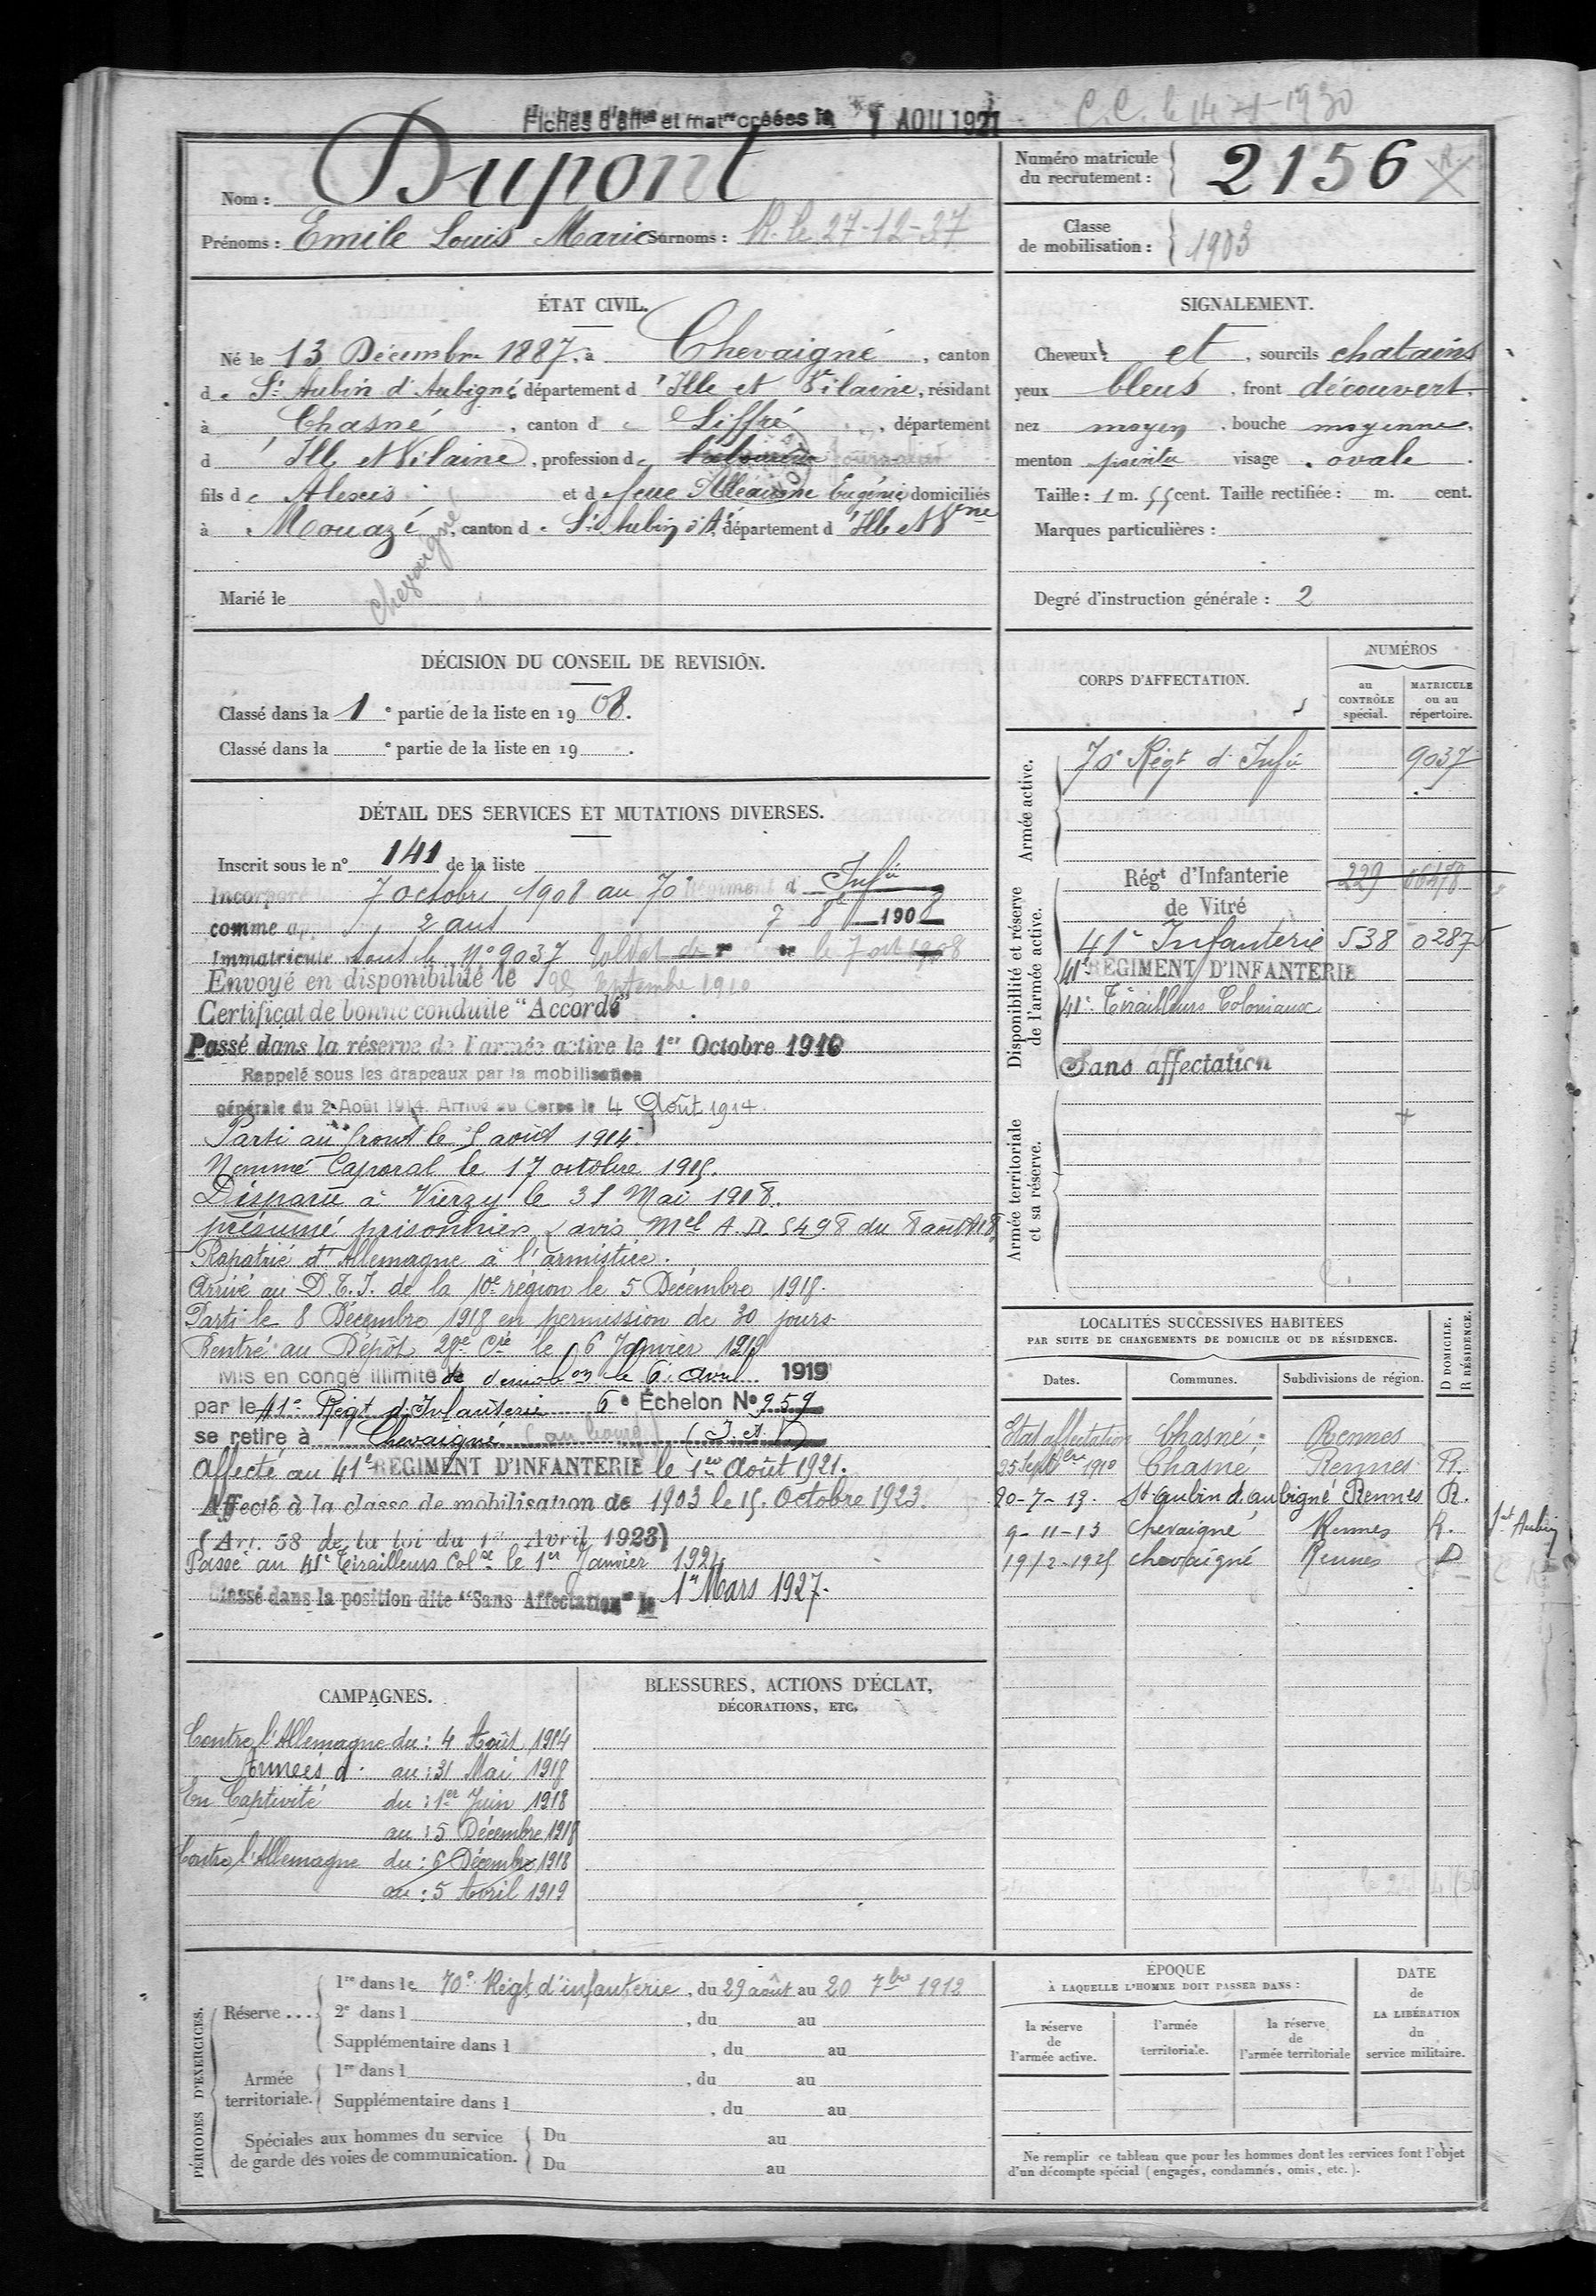 Fiches d'aff^on et mat^re créées le 1 AOU 1921
C.C. le 14-1-1930
Nom : Dupont
Prénoms : Emile Louis Marie Surnoms : R. le 27-12-37
Numéro matricule du recrutement : 2156
Classe de mobilisation : 1903
ÉTAT CIVIL.
Né le 13 Décembre 1887, à Chevaigné, canton
de St Aubin d'Aubigné, département d'Ille et Vilaine, résidant
à Chasné, canton de Liffré, département
d'Ille et Vilaine, profession de
fils de Alexis et de feue Eugénie domiciliés
à Mouazé, canton de St Aubin d'A., département d'Ille et Vne
Chevaigné
Marié le
SIGNALEMENT.
Cheveux et, sourcils chatains
yeux bleus, front découvert,
nez moyen, bouche moyenne,
menton pointu visage ovale.
Taille : 1 m. 55 cent. Taille rectifiée : m. cent.
Marques particulières :
Degré d'instruction générale : 2
DÉCISION DU CONSEIL DE REVISION.
Classé dans la 1e partie de la liste en 1908.
Classé dans la e partie de la liste en 19 .
DÉTAIL DES SERVICES ET MUTATIONS DIVERSES.
Inscrit sous le n° 141 de la liste
Incorporé 7 octobre 1908 au 70e Régiment d'Infie
comme 2 ans 7 8bre 1908
Immatriculé sous le N° 9037 Soldat de le 7 oct 1908
Envoyé en disponibilité le 25 Septembre 1910
Certificat de bonne conduite "Accordé"
Passé dans la réserve de l'armée active le 1er Octobre 1910
Rappelé sous les drapeaux par la mobilisation
générale du 2 Août 1914. Arrivé au Corps le 4 Août 1914.
Parti au front le 5 août 1914
Nommé Caporal le 17 octobre 1915.
Disparu à Vierzy le 31 Mai 1918.
présumé prisonnier avis Mel A.D. 5498 du 8 août 1918
Rapatrié d'Allemagne à l'armistice.
Arrivé au D.T.I. de la 10e région le 5 Décembre 1918.
Parti le 8 Décembre 1918 en permission de 30 jours.
Rentré au Dépôt 29e Cie le 6 Janvier 1919
Mis en congé illimité de démobon le 6 avril 1919
par le 41e Régt d'Infanterie 6e Échelon N° 959
se retire à Chevaigné (I. et V.)
Affecté au 41e RÉGIMENT D'INFANTERIE le 1er Août 1921.
Affecté à la classe de mobilisation de 1903 le 15 Octobre 1923.
(Art. 58 de la loi du 1er Avril 1923)
Passé au 41e Tirailleurs Colx le 1er Janvier 1924
Classé dans la position dite "Sans Affectation" le 1er Mars 1927.
CORPS D'AFFECTATION.
NUMÉROS
au CONTRÔLE spécial.
MATRICULE ou au répertoire.
Armée active.
70e Régt d'Infie 9037
Disponibilité et réserve de l'armée active.
Régt d'Infanterie de Vitré 229
41e Infanterie 538 02875
41e RÉGIMENT D'INFANTERIE
41e Tirailleurs Coloniaux
Sans affectation
Armée territoriale et sa réserve.
LOCALITÉS SUCCESSIVES HABITÉES
PAR SUITE DE CHANGEMENTS DE DOMICILE OU DE RÉSIDENCE.
Dates. Communes. Subdivisions de région. D DOMICILE. R RÉSIDENCE.
Etat affectation Chasné Rennes
25 Septbre 1910 Chasné Rennes R.
20-7-13. St aubin d'aubigné Rennes R.
9-11-13 Chevaigné Rennes R.
19-12-1925 chevaigné Rennes D
St Aubin
CAMPAGNES.
Contre l'Allemagne du : 4 Août 1914
Armées d. au : 31 Mai 1918
En Captivité du : 1er Juin 1918
au : 5 Décembre 1918
Contre l'Allemagne du : 6 Décembre 1918
au : 5 Avril 1919
BLESSURES, ACTIONS D'ÉCLAT,
DÉCORATIONS, ETC.
PÉRIODES D'EXERCICES.
Réserve ... 1re dans le 70e Régt d'infanterie, du 29 août au 20 7bre 1912
2e dans l , du au
Supplémentaire dans l , du au
Armée territoriale. 1re dans l , du au
Supplémentaire dans l , du au
Spéciales aux hommes du service de garde des voies de communication. Du au
Du au
ÉPOQUE
À LAQUELLE L'HOMME DOIT PASSER DANS :
la réserve de l'armée active.
l'armée territoriale.
la réserve de l'armée territoriale
DATE de LA LIBÉRATION du service militaire.
Ne remplir ce tableau que pour les hommes dont les services font l'objet
d'un décompte spécial (engagés, condamnés, omis, etc.).